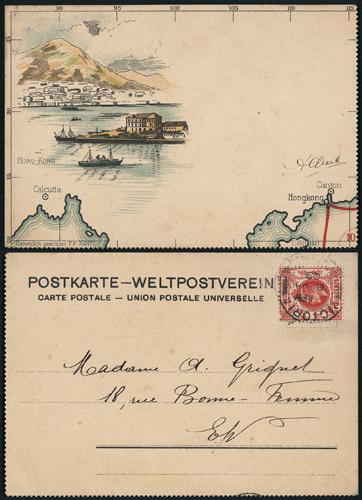 90 95 100 105 110 115
HONG-KONG
Albert
Calcutta
Canton
Hongkong
Gesetzlich geschützt
10
POSTKARTE–WELTPOSTVEREIN
CARTE POSTALE – UNION POSTALE UNIVERSELLE
VICTORIA
Madame A. Griquel
18, rue Bonne-Femme
EV